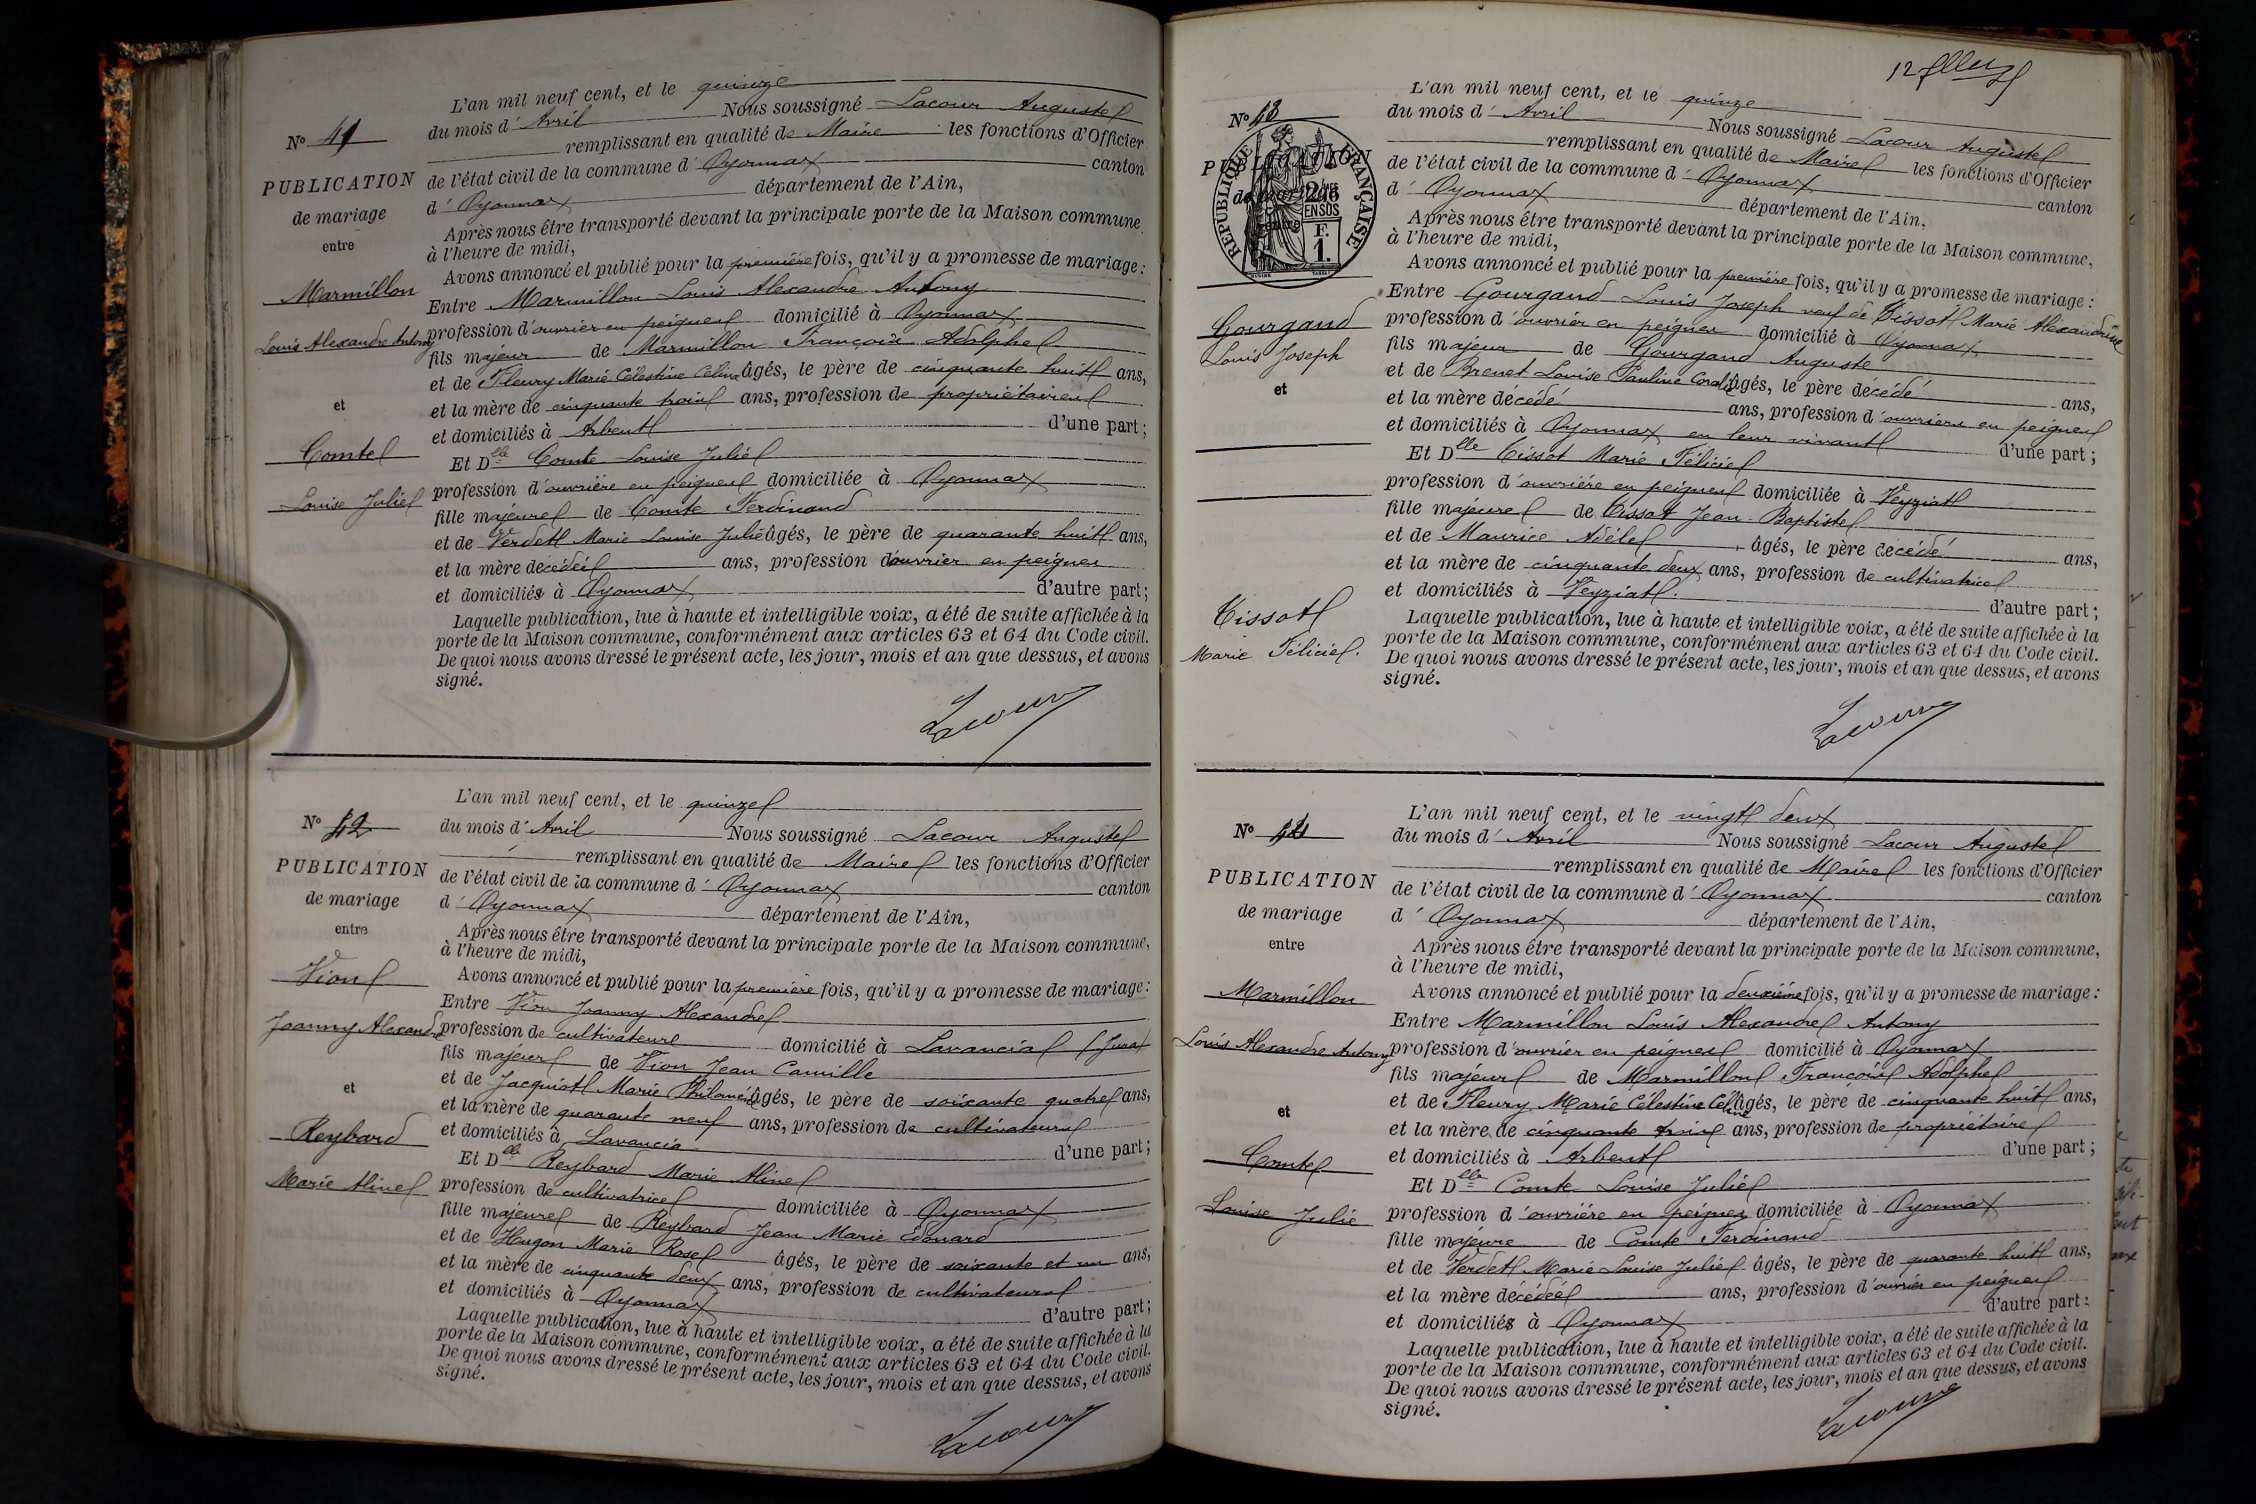 L'an mil neuf cent, et le quinze
du mois d'Avril Nous soussigné Lacour Auguste
remplissant en qualité de Maire les fonctions d'Officier
de l'état civil de la commune d'Oyonnax canton
d'Oyonnax département de l'Ain,
Après nous être transporté devant la principale porte de la Maison commune,
à l'heure de midi,
Avons annoncé et publié pour la première fois, qu'il y a promesse de mariage :
Entre Marmillon Louis Alexandre Antony
profession d'ouvrier en peignes domicilié à Oyonnax
fils majeur de Marmillon François Adolphe
et de Fleury Marie Célestine Céline âgés, le père de cinquante huit ans,
et la mère de cinquante trois ans, profession de propriétaires
et domiciliés à Arbent d'une part ;
Et Dlle Comte Louise Julie
profession d'ouvrière en peignes domiciliée à Oyonnax
fille majeure de Comte Ferdinand
et de Verdet Marie Louise Julie âgés, le père de quarante huit ans,
et la mère décédée ans, profession d'ouvrier en peignes
et domiciliés à Oyonnax d'autre part ;
Laquelle publication, lue à haute et intelligible voix, a été de suite affichée à la
porte de la Maison commune, conformément aux articles 63 et 64 du Code civil.
De quoi nous avons dressé le présent acte, les jour, mois et an que dessus, et avons
signé.
Lacour
No 41
PUBLICATION
de mariage
entre
Marmillon
Louis Alexandre Antony
et
Comte
Louise Julie
L'an mil neuf cent, et le quinze
du mois d'Avril Nous soussigné Lacour Auguste
remplissant en qualité de Maire les fonctions d'Officier
de l'état civil de la commune d'Oyonnax canton
d'Oyonnax département de l'Ain,
Après nous être transporté devant la principale porte de la Maison commune,
à l'heure de midi,
Avons annoncé et publié pour la première fois, qu'il y a promesse de mariage :
Entre Vion Joanny Alexandre
profession de cultivateur domicilié à Lavancia (Jura)
fils majeur de Vion Jean Camille
et de Jacquiot Marie Philomène âgés, le père de soixante quatre ans,
et la mère de quarante neuf ans, profession de cultivateurs
et domiciliés à Lavancia d'une part ;
Et Dlle Reybard Marie Aline
profession de cultivatrice domiciliée à Oyonnax
fille majeure de Reybard Jean Marie Edouard
et de Hugon Marie Rose âgés, le père de soixante et un ans,
et la mère de cinquante deux ans, profession de cultivateurs
et domiciliés à Oyonnax d'autre part ;
Laquelle publication, lue à haute et intelligible voix, a été de suite affichée à la
porte de la Maison commune, conformément aux articles 63 et 64 du Code civil.
De quoi nous avons dressé le présent acte, les jour, mois et an que dessus, et avons
signé.
Lacour
No 42
PUBLICATION
de mariage
entre
Vion
Joanny Alexandre
et
Reybard
Marie Aline
12
L'an mil neuf cent, et le quinze
du mois d'Avril Nous soussigné Lacour Auguste
remplissant en qualité de Maire les fonctions d'Officier
de l'état civil de la commune d'Oyonnax canton
d'Oyonnax département de l'Ain,
Après nous être transporté devant la principale porte de la Maison commune,
à l'heure de midi,
Avons annoncé et publié pour la première fois, qu'il y a promesse de mariage :
Entre Gourgand Louis Joseph veuf de Tissot Marie Alexandrine
profession d'ouvrier en peignes domicilié à Oyonnax
fils majeur de Gourgand Auguste
et de Brenet Louise Pauline Coralie âgés, le père décédé ans,
et la mère décédé ans, profession d'ouvriers en peignes
et domiciliés à Oyonnax en leur vivant d'une part ;
Et Dlle Tissot Marie Félicie
profession d'ouvrière en peignes domiciliée à Veyziat
fille majeure de Tissot Jean-Baptiste
et de Maurice Adèle âgés, le père décédé ans,
et la mère de cinquante deux ans, profession de cultivatrice
et domiciliés à Veyziat. d'autre part ;
Laquelle publication, lue à haute et intelligible voix, a été de suite affichée à la
porte de la Maison commune, conformément aux articles 63 et 64 du Code civil.
De quoi nous avons dressé le présent acte, les jour, mois et an que dessus, et avons
signé.
Lacour
No 43
PUBLICATION
de mariage
entre
REPUBLIQUE FRANÇAISE
2/10
EN SUS
F.
1.
Gourgand
Louis Joseph
et
Tissot
Marie Félicie.
L'an mil neuf cent, et le vingt deux
du mois d'Avril Nous soussigné Lacour Auguste
remplissant en qualité de Maire les fonctions d'Officier
de l'état civil de la commune d'Oyonnax canton
d'Oyonnax département de l'Ain,
Après nous être transporté devant la principale porte de la Maison commune,
à l'heure de midi,
Avons annoncé et publié pour la deuxième fois, qu'il y a promesse de mariage :
Entre Marmillon Louis Alexandre Antony
profession d'ouvrier en peignes domicilié à Oyonnax
fils majeur de Marmillon François Adolphe
et de Fleury Marie Célestine Céline âgés, le père de cinquante huit ans,
et la mère de cinquante trois ans, profession de propriétaire
et domiciliés à Arbent d'une part ;
Et Dlle Comte Louise Julie
profession d'ouvrière en peignes domiciliée à Oyonnax
fille majeure de Comte Ferdinand
et de Verdet Marie Louise Julie âgés, le père de quarante huit ans,
et la mère décédée ans, profession d'ouvrier en peignes
et domiciliés à Oyonnax d'autre part :
Laquelle publication, lue à haute et intelligible voix, a été de suite affichée à la
porte de la Maison commune, conformément aux articles 63 et 64 du Code civil.
De quoi nous avons dressé le présent acte, les jour, mois et an que dessus, et avons
signé.
Lacour
No 44
PUBLICATION
de mariage
entre
Marmillon
Louis Alexandre Antony
et
Comte
Louise Julie